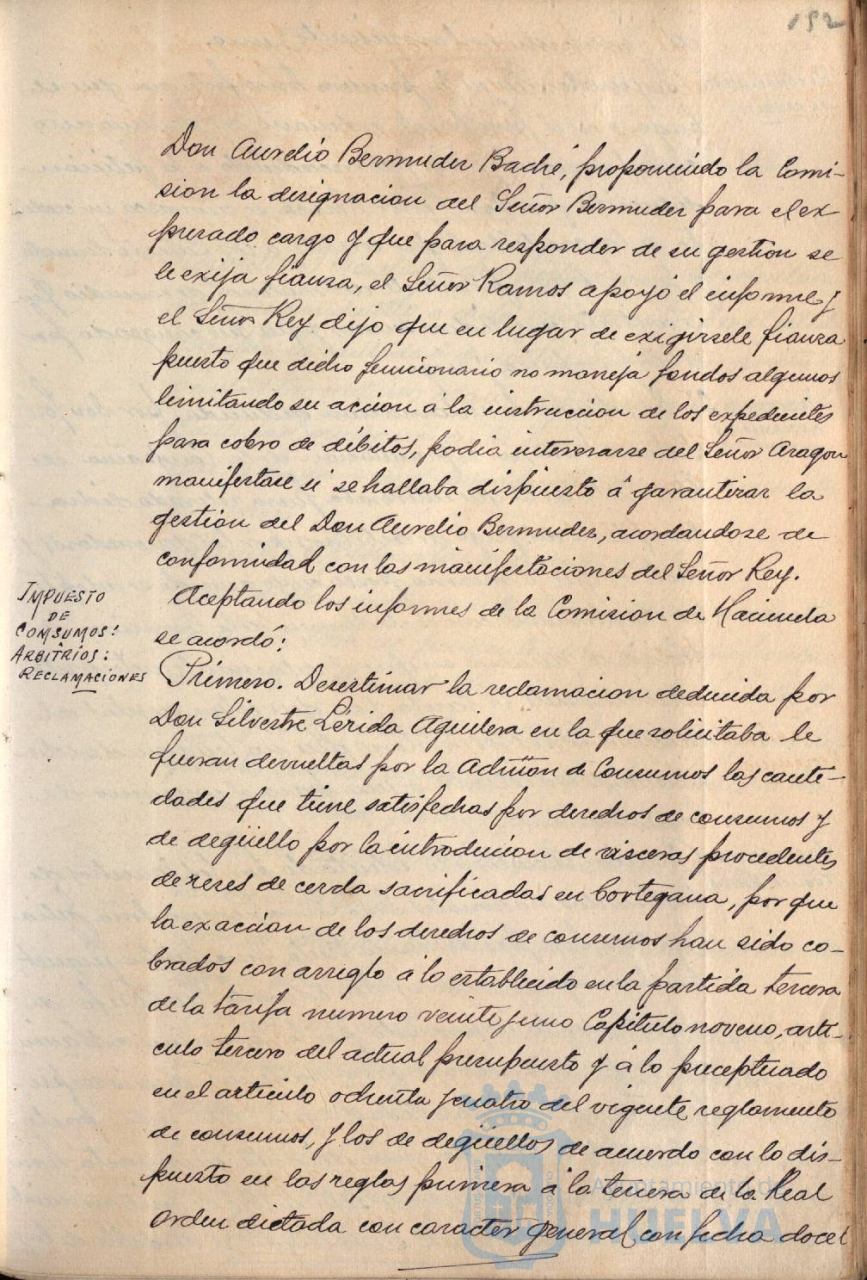 152
Don Aurelio Bermudez Baché, proponiendo la Comi-
sion la designacion del Señor Bermudez para el ex
presado cargo y que para responder de su gestion se
le exija fianza, el Señor Ramos apoyó el informe y
el Señor Rey dijo que en lugar de exigirsele fianza
puesto que dicho funcionario no maneja fondos algunos
limitando su acción á la instruccion de los expedientes
para cobro de débitos, podia interesarse del Señor Aragon
manifestase si se hallaba dispuesto á garantizar la
gestión del Don Aurelio Bermudez, acordandose de
conformidad con las manifestaciones del Señor Rey.
Aceptando los informes de la Comision de Hacienda
se acordó:
IMPUESTO
DE
COMSUMOS:
ARBITRIOS:
RECLAMACIONES
Primero. Desestimar la reclamacion deducida por
Don Silvestre Lérida Aguilera en la que solicitaba le
fueran devueltas por la Admon de Consumos las canti-
dades que tiene satisfechas por derechos de consumos y
de degüello por la introducion de visceras procedentes
de reses de cerda sacrificadas en Cortegana, por que
la exaccion de los derechos de consumos han sido co-
brados con arreglo á lo establecido en la partida tercera
de la tarifa numero veintejuno Capitulo noveno, arti-
culo tercero del actual presupuesto y á lo preceptuado
en el articulo ochenta y cuatro del vigente reglamento
de consumos, y los de degüellos de acuerdo con lo dis-
puesto en las reglas primera á la tercera de la Real
orden dictada con caracter general con fecha doce
Ayuntamiento de
HUELVA